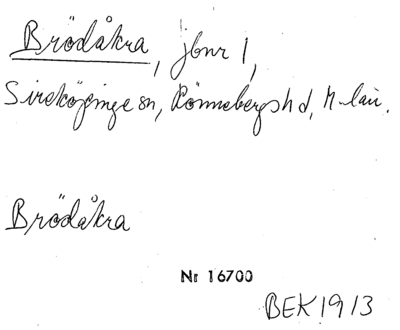 Brödåkra, jbnr 1,
Sireköpinge sn, Rönnebergs hd, M-län.
Brödåkra
Nr 16700
BEK 1913